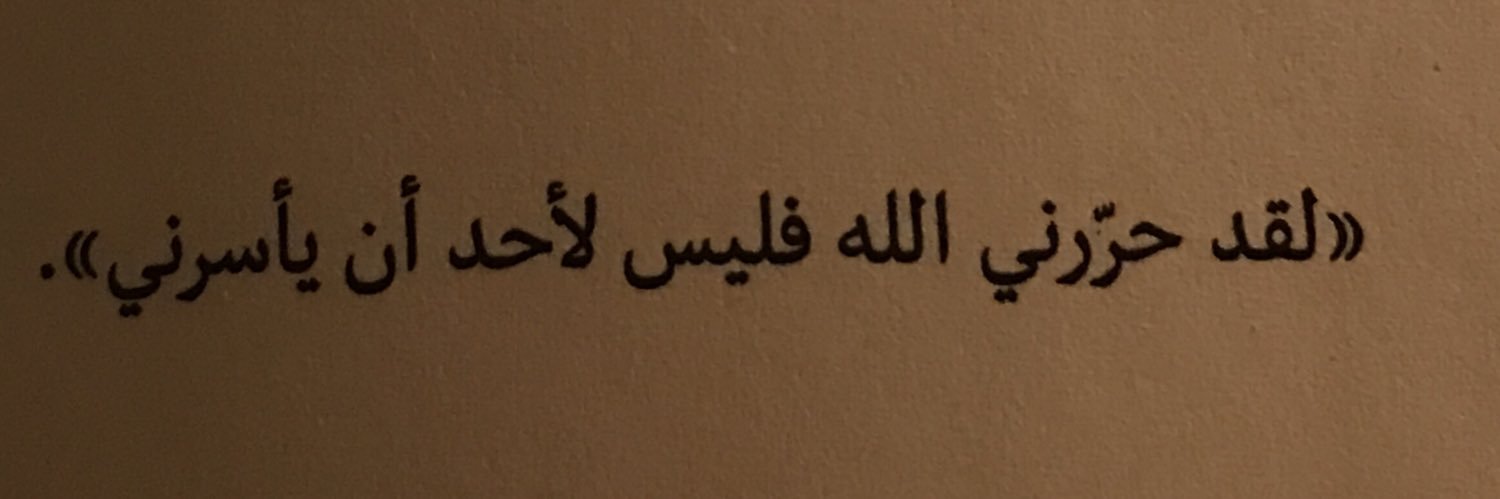 «لقد حرّرني الله فليس لأحد أن يأسرني».